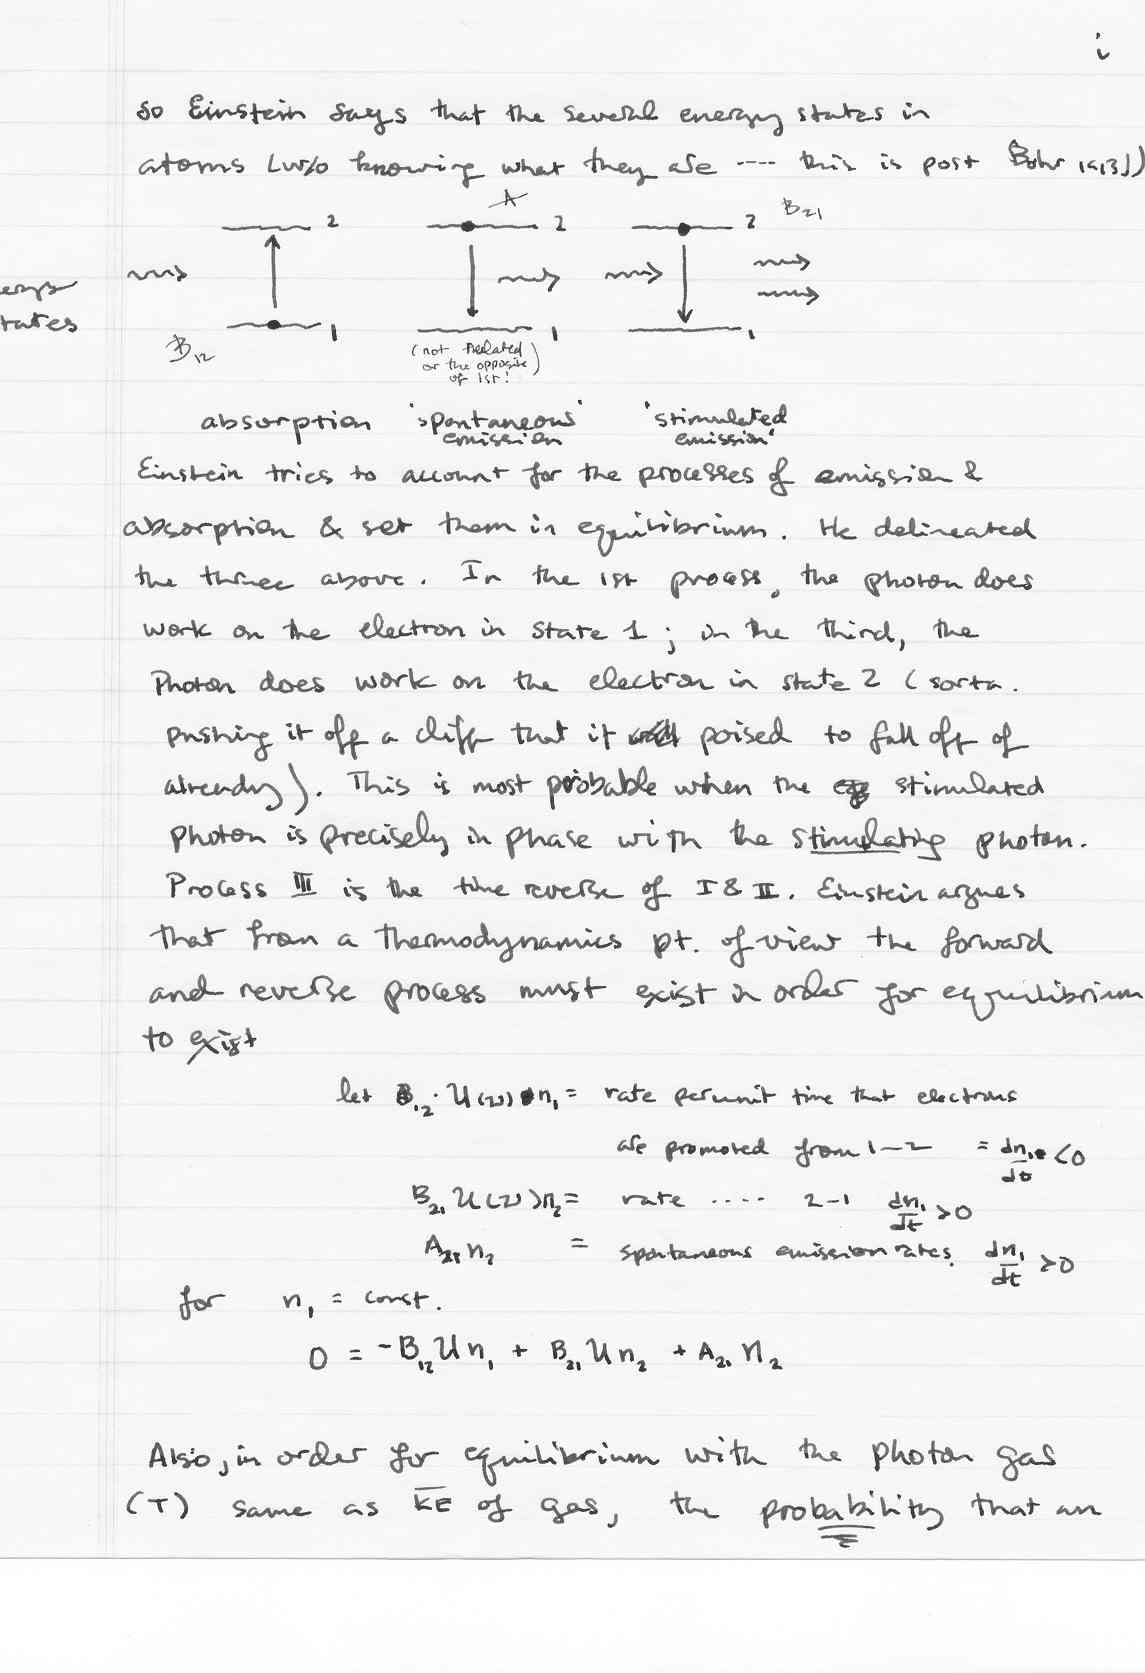 i
so Einstein says that the several energy states in
atoms (w/o knowing what they are ---- this is post Bohr 1913))
A
2 2 2 B21
ergy
tates
1 1 1
B12
(not related
or the opposite)
of 1st!
absorption 'spontaneous' 'stimulated
emission emission'
Einstein tries to account for the processes of emission &
absorption & set them in equilibrium. He delineated
the three above. In the 1st process, the photon does
work on the electron in state 1; in the third, the
Photon does work on the electron in state 2 (sorta.
pushing it off a cliff that it poised to fall off of
already). This is most probable when the stimulated
photon is precisely in phase with the stimulating photon.
Process III is the time reverse of I & II. Einstein argues
that from a thermodynamics pt. of view the forward
and reverse process must exist in order for equilibrium
to exist
let B12 · U(ν) n1 = rate per unit time that electrons
are promoted from 1-2 = dn1/dt <0
B21 U(ν) n2 = rate .... 2-1 dn1/dt >0
A21 n2 = spontaneous emission rates. dn1/dt >0
for n1 = const.
0 = -B12 U n1 + B21 U n2 + A21 n2
Also, in order for equilibrium with the photon gas
(T) same as KE of gas, the probability that an